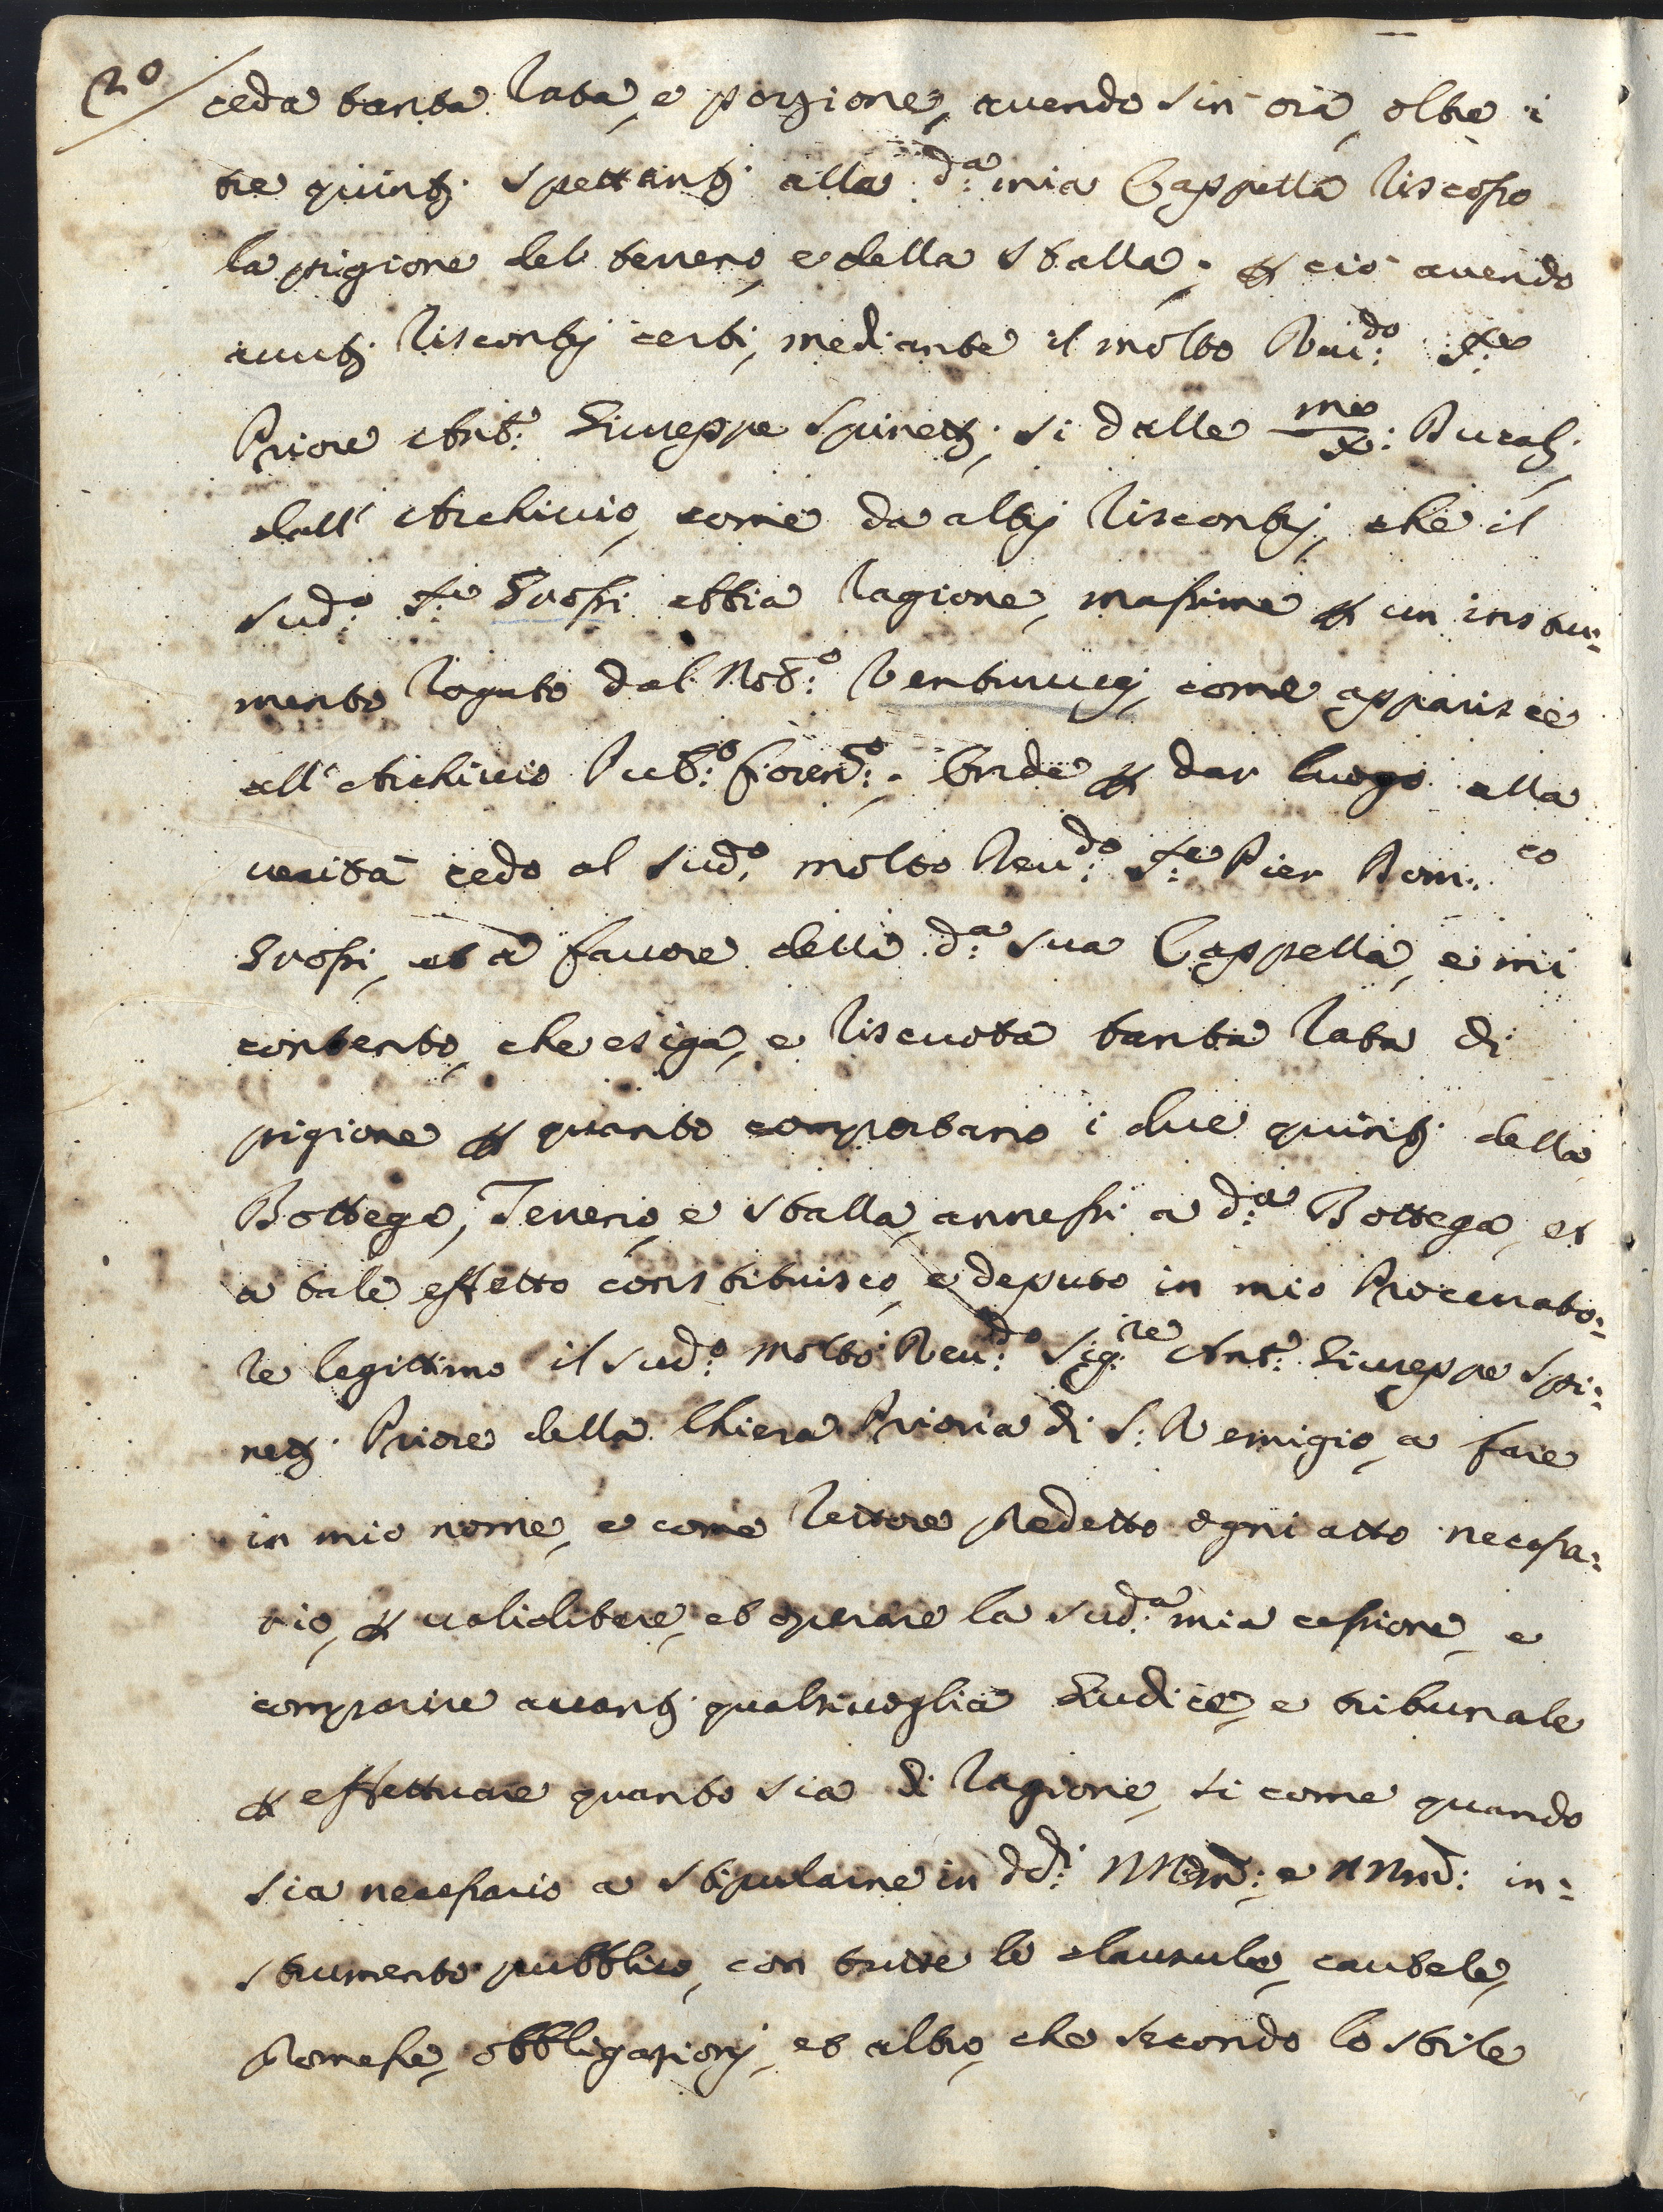 20
ceda tanta rata, e porzione, avendo sin' ora, oltre i
tre quinti spettanti alla d:a mia Cappella riscosso
la pigione del terreno, e della stalla; p ciò avendo
avuti riscontrj certi, mediante il molto Rev:do S:re
Priore Ant:o Giuseppe Spinetti, si dalle Burali,
dall' Archivio, come da altrj riscontrj, che il
sud:o S:re Grossi abbia ragione, massime p un instru=
mento rogato dal Not:o Venturucci, come apparisce
all' Archivio Pub:o fioren:o. Onde p dar luogo alla
verità cedo al sud:o molto Rev:do S:re Pier Dom:co
Grossi, et à favore della d:a sua Cappella, e mi
contento, che esiga, e riscuota tanta rata di
pigione p quanto comportano i due quinti della
Bottega, Terreno, e stalla, annessi a d:a Bottega, et
a tale effetto constituisco, e deputo in mio Procurato=
re legittimo il sud:o Molto Rev:do Sig:re Ant:o Giuseppe Spi=
netti Priore della Chiesa Prioria di S: Remigio, a fare
in mio nome, e come rettore predetto ogni atto necessa=
rio, p validitare, et operare la sud:a mia cessione, e
comparire avanti qualsivoglia Giudice, e tribunale
p effettuare quanto sia di ragione, si come quando
sia necessario a stipularne in dd:i e in=
strumento pubblico, con tutte le clausule, cautele,
promesse, obbligazionj, et altro, che secondo lo stile